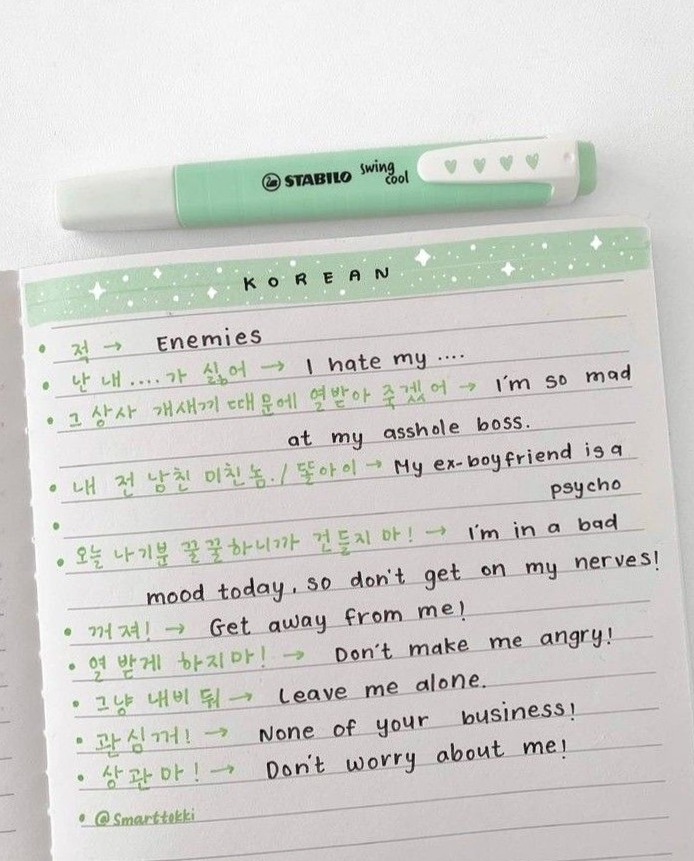 STABILO swing cool
KOREAN
• 적 → Enemies
• 난 내....가 싫어 → I hate my ....
• 그 상사 개새끼 때문에 열받아 죽겠어 → I'm so mad
at my asshole boss.
• 내 전 남친 미친놈./ 똘아이 → My ex-boyfriend is a
psycho
•
• 오늘 나기분 꿀꿀하니까 건들지 마! → I'm in a bad
mood today, so don't get on my nerves!
• 꺼져! → Get away from me!
• 열 받게 하지마! → Don't make me angry!
• 그냥 내비 둬 → Leave me alone.
• 관심꺼! → None of your business!
• 상관마! → Don't worry about me!
• @Smarttokki